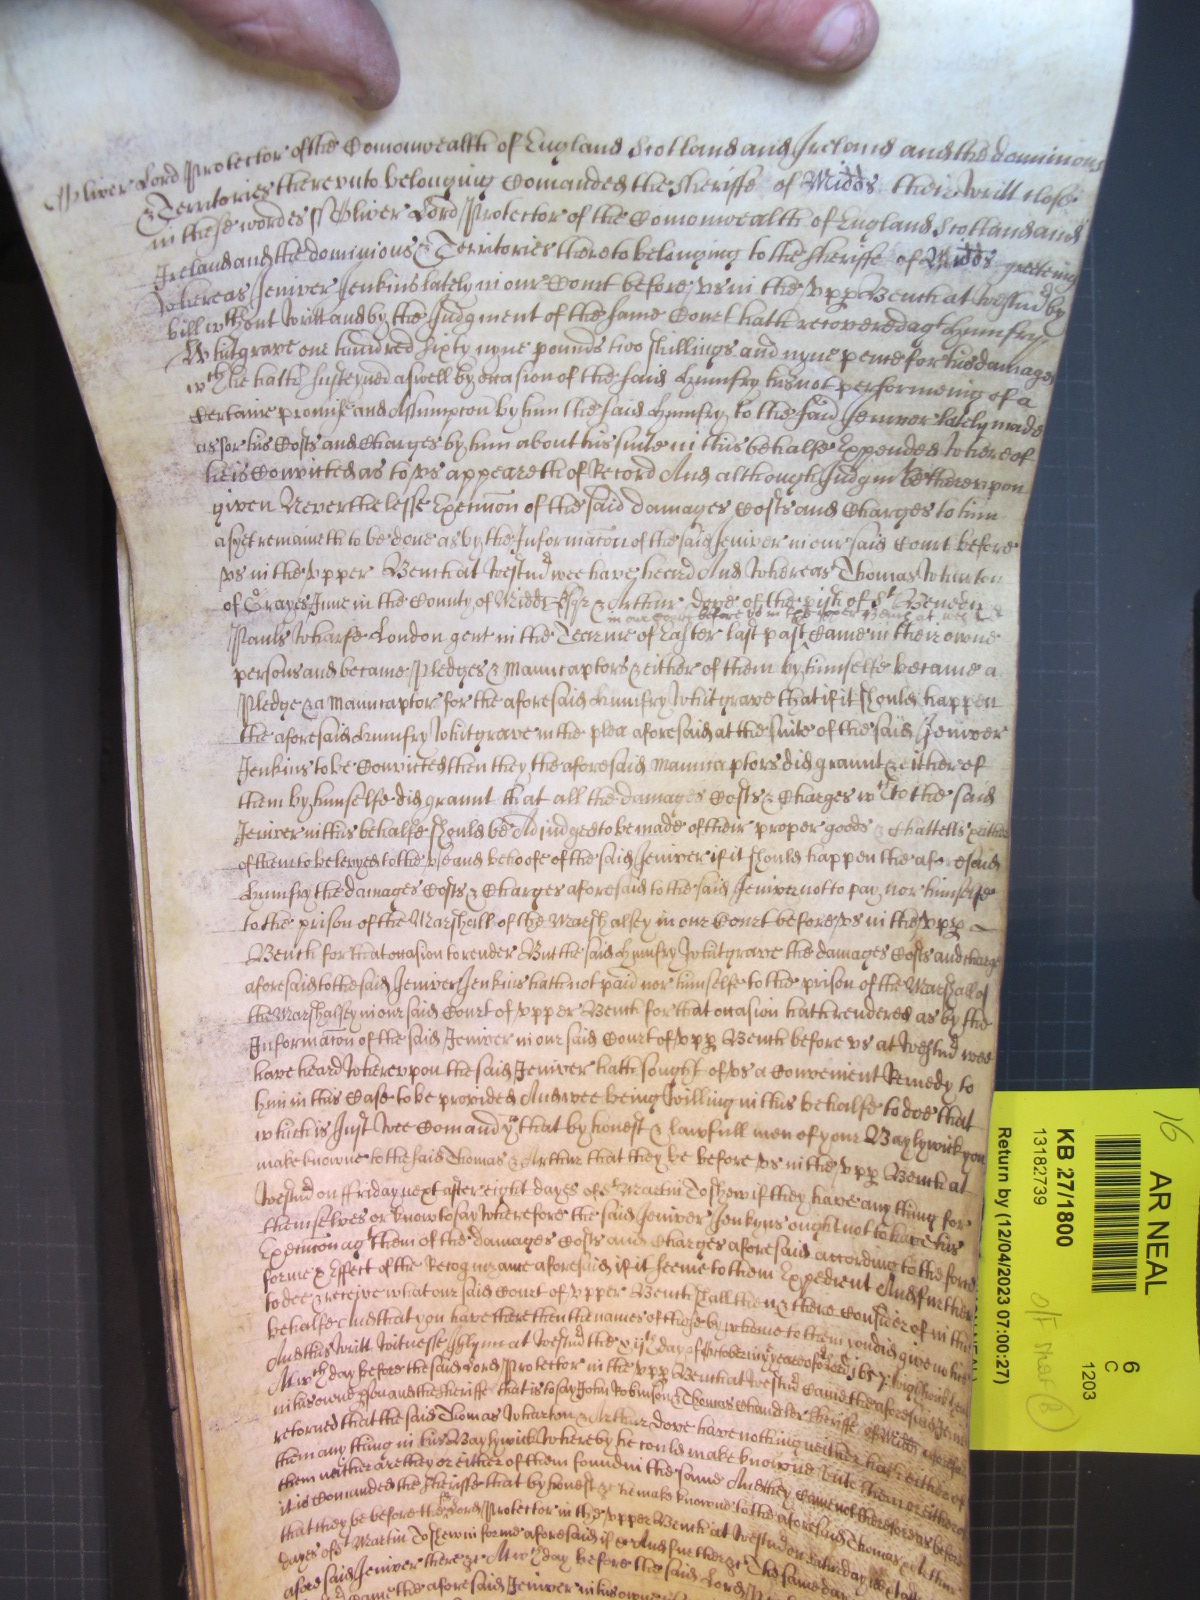 Oliver Lord Protector of the Comonwealth of England Scotland and Ireland and the dominions
& Territories therevnto belonging Comanded the Sheriffe of Midds their writt close
in these wordes ss Oliver Lord Protector of the Comonwealth of England Scotland and
Ireland and the dominions & Territories thereto belonging to the Sheriffe of Midds greeting
Whereas Jeniver Jenkins lately in our Court before vs in the vpp Bench at Westmr by
bill wthout writt and by the Judgment of the same Court hath recovered agt Humfry
Whitgrave one hundred sixty nyne pounds two shillings and nyne pence for his damages
wch he hath susteyned aswell by occasion of the said Humfry his not performeing of a
Certaine promise and Assumpcon by him the said Humfry to the said Jeniver lately made
as for his Costs and Charges by him about his suite in this behalfe Expended whereof
he is Convicted as to vs appeareth of Record And although Judgmt be therevpon
given Neverthelesse Execucon of the said damages Costs and Charges to him
as yet remaineth to be done as by the Informacon of the said Jeniver in our said Court before
vs in the vpper Bench at Westmr wee have heard And Whereas Thomas Wharton
of Grayes Inne in the County of Midd Esqr & Arthur Dove of the pish of St Bennett
in our Court before vs in the vpper Bench at Westmr
Pauls Wharfe London gent in the Tearme of Easter last past Came in their owne
persons and became Pledges & Manucaptors & either of them by himselfe became a
Pledge & a Manucaptor for the aforesaid Humfry Whitgrave that if it should happen
the aforesaid Humfry Whitgrave in the plea aforesaid at the suite of the said Jeniver
Jenkins to be Convicted then they the aforesaid manucaptors did graunt & either of
them by himselfe did graunt that all the damages Costs & Charges wch to the said
Jeniver in this behalfe should be Adjudged to be made of their proper goods & Chattells & either
of them to be levyed to the vse and behoofe of the said Jeniver if it should happen the aforesaid
Humfry the damages Costs & Charges aforesaid to the said Jeniver not to pay nor himselfe
to the prison of the Marshall of the Marshalsey in our Court before vs in the vpp
Bench for that occasion to render But the said Humfry Whitgrave the damages Costs and Charges
aforesaid to the said Jeniver Jenkins hath not paid nor himselfe to the prison of the Marshall of
the Marshalsey in our said Court of vpper Bench for that occasion hath rendered as by the
Informacon of the said Jeniver in our said Court of vpp Bench before vs at Westmr wee
have heard Wherevpon the said Jeniver hath sought of vs a Convenient Remedy to
him in this Case to be provided And wee being willing in this behalfe to doe that
which is Just Wee Comand you that by honest & lawfull men of your Baylywick you
make knowne to the said Thomas & Arthur that they be before vs in the vpp Bench at
Westmr on Friday next after eight dayes of St Martin To shew if they have any thing for
themselves or know to say Wherefore the said Jeniver Jenkyns ought not to have his
Execucon agt them of the damages Costs and Charges aforesaid according to the force
forme & Effect of the Recognizance aforesaid if it seeme to them Expedient And further
to doe & receive what our said Court of vpper Bench shall then & there Consider of in this
behalfe And that you have there then the names of those by whome to them you did give notice
And this writt Witnesse Glynn at Westmr the day of October in the yeare of our Lord 1657
At wch day before the said Lord Protector in the vpp Bench at Westmr Came the aforesaid Jeniver
in his owne pson and the Sheriffe that is to say John Robinson & Thomas Chandler Sheriffe of Midds aforesaid
retorned that the said Thomas Wharton & Arthur Dove have nothing neither hath either of
them any thing in his Baylywick Whereby he could make knowne vnto them or either of
them neither are they or either of them found in the same And they came not Therefore as before
it is Comanded the Sheriffe that by honest &c he make knowne to the aforesaid Thomas & Arthur
that they be before the Lord Protector in the vpper Bench at Westmr on Saturday
dayes of St Martin To shew in forme aforesaid if &c And further &c The same day
aforesaid Jeniver there &c At wch day before the said Lord
Came the aforesaid Jeniver in his owne
16
AR NEAL
6
C
1203
KB 27/1800
13182739
Return by (12/04/2023 07:00:27)